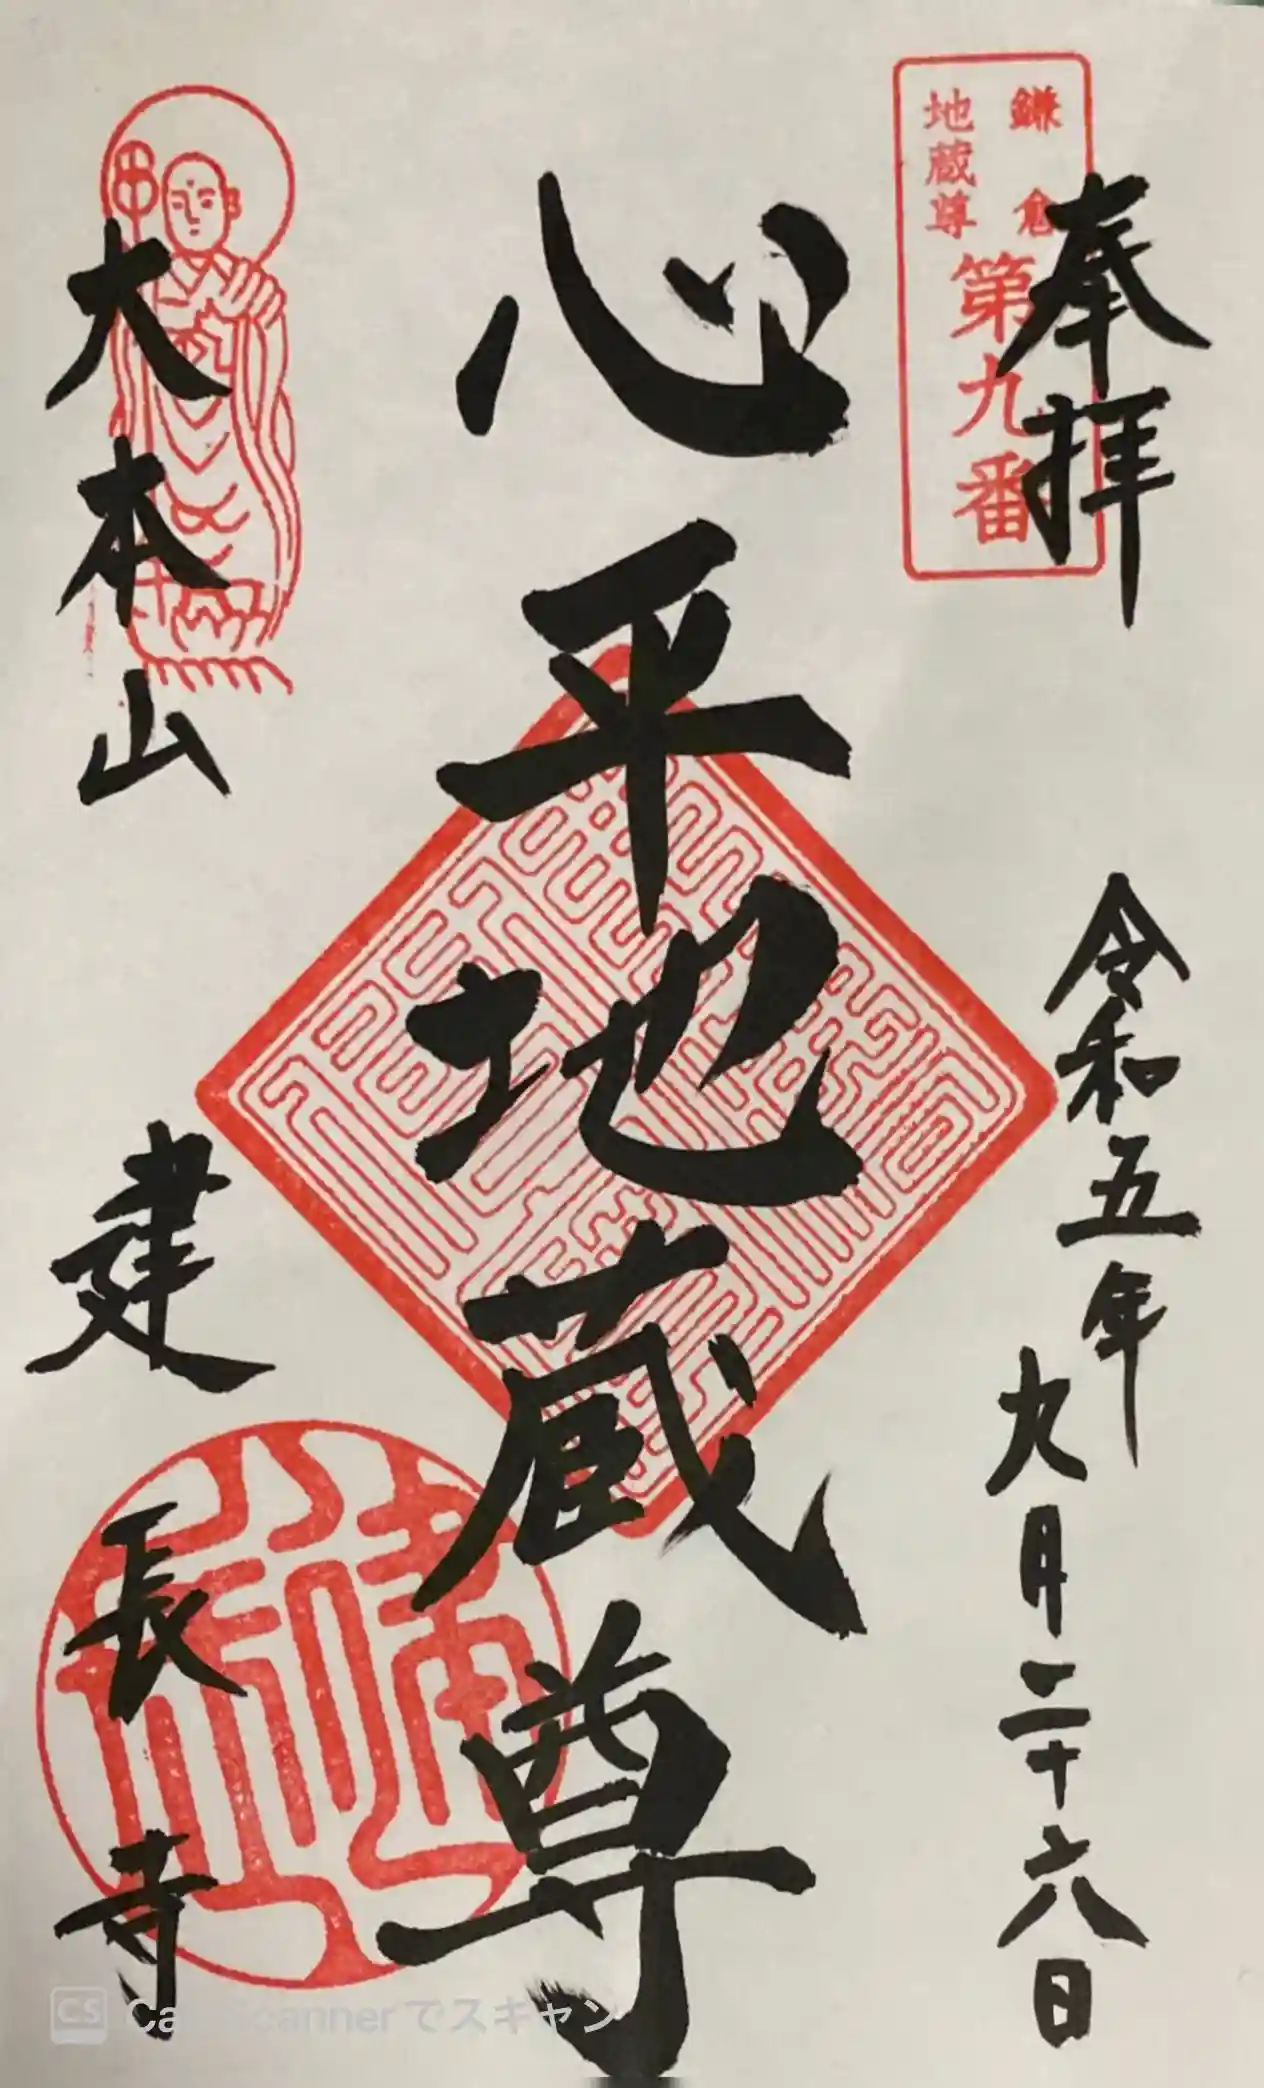 奉拝
令和五年
九月二十六日
鎌倉
地蔵尊
第九番
心平地蔵尊
大本山
建長寺
CS CamScannerでスキャン